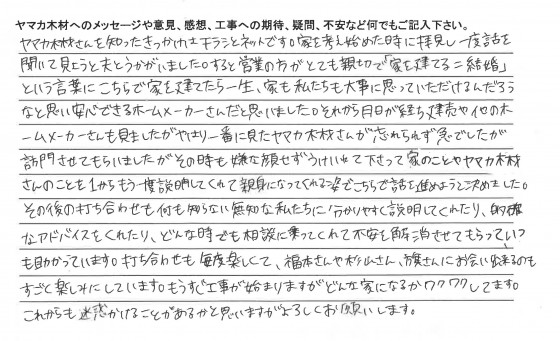 ヤマカ木材へのメッセージや意見、感想、工事への期待、疑問、不安など何でもご記入下さい。
ヤマカ木材さんを知ったきっかけはチラシとネットです。家を考え始めた時に拝見し一度話を
聞いて見ようと夫とうかがいました。すると営業の方がとても親切で「家を建てる=結婚」
という言葉にこちらで家を建てたら一生、家も私たちも大事に思っていただけるんだろう
なと思い安心できるホームメーカーさんだと思いました。それから月日が経ち建売や他のホ
ームメーカーさんも見ましたがやはり一番に見たヤマカ木材さんが忘れられず急でしたが
訪問させてもらいましたがその時も嫌な顔せずうけいれて下さって家のことやヤマカ木材
さんのことを1からもう一度説明してくれて親身になってくれる姿でこちらで話を進めようと決めました。
その後の打ち合わせも何も知らない無知な私たちに分かりやすく説明してくれたり、的確
なアドバイスをくれたり、どんな時でも相談に乗ってくれて不安を解消させてもらっていつ
も助かっています。打ち合わせも毎度楽しくて、福本さんや杉山さん、さんにお会い出来るのも
すごく楽しみにしています。もうすぐ工事が始まりますがどんな家になるかワクワクしてます。
これからも迷惑かけることがあるかと思いますがよろしくお願いします。